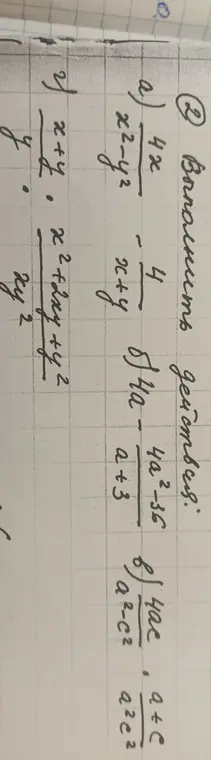 ② Выполнить действия:
а) 4x/(x²-y²) - 4/(x+y) б) 4a - (4a²-36)/(a+3) в) 4ac/(a²-c²) · (a+c)/(a²c²)
г) (x+y)/y : (x²+2xy+y²)/(2y²)